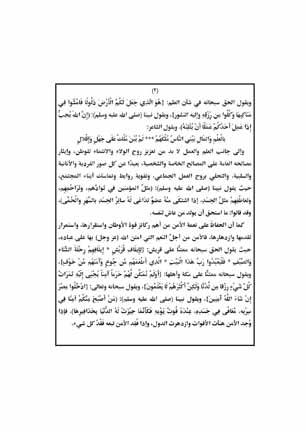 (٢)
ويقول الحق سبحانه في شأن العلم: {هُوَ الَّذِي جَعَلَ لَكُمُ الْأَرْضَ ذَلُولًا فَامْشُوا فِي
مَنَاكِبِهَا وَكُلُوا مِن رِّزْقِهِ وَإِلَيْهِ النُّشُورُ}، ويقول نبينا (صلى الله عليه وسلم): (إِنَّ اللهَ يُحِبُّ
إِذَا عَمِلَ أَحَدُكُمْ عَمَلًا أَنْ يُتْقِنَهُ)، ويقول الشاعر:
بِالْعِلْمِ وَالْمَالِ يَبْنِي النَّاسُ مُلْكَهُمُ *** لَمْ يُبْنَ مُلْكٌ عَلَى جَهْلٍ وَإِقْلَالِ
وإلى جانب العلم والعمل لا بد من تعزيز روح الولاء والانتماء للوطن، وإيثار
مصالحه العامة على المصالح الخاصة والشخصية، بعيدًا عن كل صور الفردية والأنانية
والسلبية، والتحلي بروح العمل الجماعي، وتقوية روابط وتماسك أبناء المجتمع،
حيث يقول نبينا (صلى الله عليه وسلم): (مثَلُ المؤمنين في تَوادِّهم، وتَراحُمِهِم،
وتعاطُفِهِمْ مثلُ الجسَدِ، إذا اشتكَى منْهُ عضوٌ تدَاعَى لَهُ سائِرُ الجسَدِ بالسَّهَرِ والْحُمَّى)،
وقد قالوا: ما استحق أن يولد من عاش لنفسه.
كما أن الحفاظ على نعمة الأمن من أهم ركائز قوة الأوطان واستقرارها، واستمرار
تقدمها وازدهارها، فالأمن من أجلّ النعم التي امتن الله (عز وجل) بها على عباده،
حيث يقول الحق سبحانه ممتنًّا على قريش: {لِإِيلَافِ قُرَيْشٍ * إِيلَافِهِمْ رِحْلَةَ الشِّتَاءِ
وَالصَّيْفِ * فَلْيَعْبُدُوا رَبَّ هَٰذَا الْبَيْتِ * الَّذِي أَطْعَمَهُم مِّن جُوعٍ وَآمَنَهُم مِّنْ خَوْفٍ}،
ويقول سبحانه ممتنًّا على مكة وأهلها: {أَوَلَمْ نُمَكِّن لَّهُمْ حَرَمًا آمِنًا يُجْبَىٰ إِلَيْهِ ثَمَرَاتُ
كُلِّ شَيْءٍ رِّزْقًا مِّن لَّدُنَّا وَلَٰكِنَّ أَكْثَرَهُمْ لَا يَعْلَمُونَ}، ويقول سبحانه وتعالى: {ادْخُلُوا مِصْرَ
إِن شَاءَ اللَّهُ آمِنِينَ}، ويقول نبينا (صلى الله عليه وسلم): (مَنْ أَصْبَحَ مِنْكُمْ آمِنًا فِي
سِرْبِهِ، مُعَافًى فِي جَسَدِهِ، عِنْدَهُ قُوتُ يَوْمِهِ فَكَأَنَّمَا حِيزَتْ لَهُ الدُّنْيَا بِحَذَافِيرِهَا)، فإذا
وُجد الأمن هنأت الأقوات وازدهرت الدول، وإذا فُقد الأمن تبعه فقْدُ كل شيء.